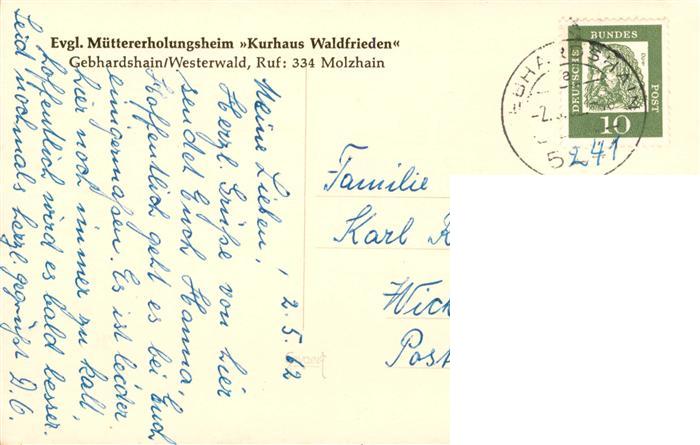 Evgl. Müttererholungsheim »Kurhaus Waldfrieden«
Gebhardshain/Westerwald, Ruf: 334 Molzhain
Meine Lieben! 2.5.62
Herzl. Grüße von hier
sendet Euch Hanna,
Hoffentlich geht es bei Euch
einigermaßen. Es ist leider
hier noch immer zu kalt,
hoffentlich wird es bald besser.
Seid nochmals herzl. gegrüßt D. O.
Familie
Karl
Wich
Post
DEUTSCHE BUNDES POST
10
EBHA SHAIN
-2.
5
241